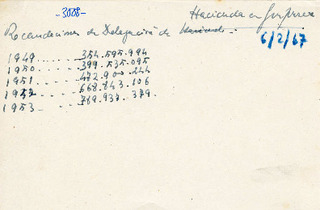 -3508-
Hacienda en Guipúzcoa
Recaudaciones de Delegación de Hacienda.-
6/2/67
1949....... 354.595.994
1950....... 399.535.095
1951....... 472.900.244
1952....... 668.843.106
1953....... 789.937.379.